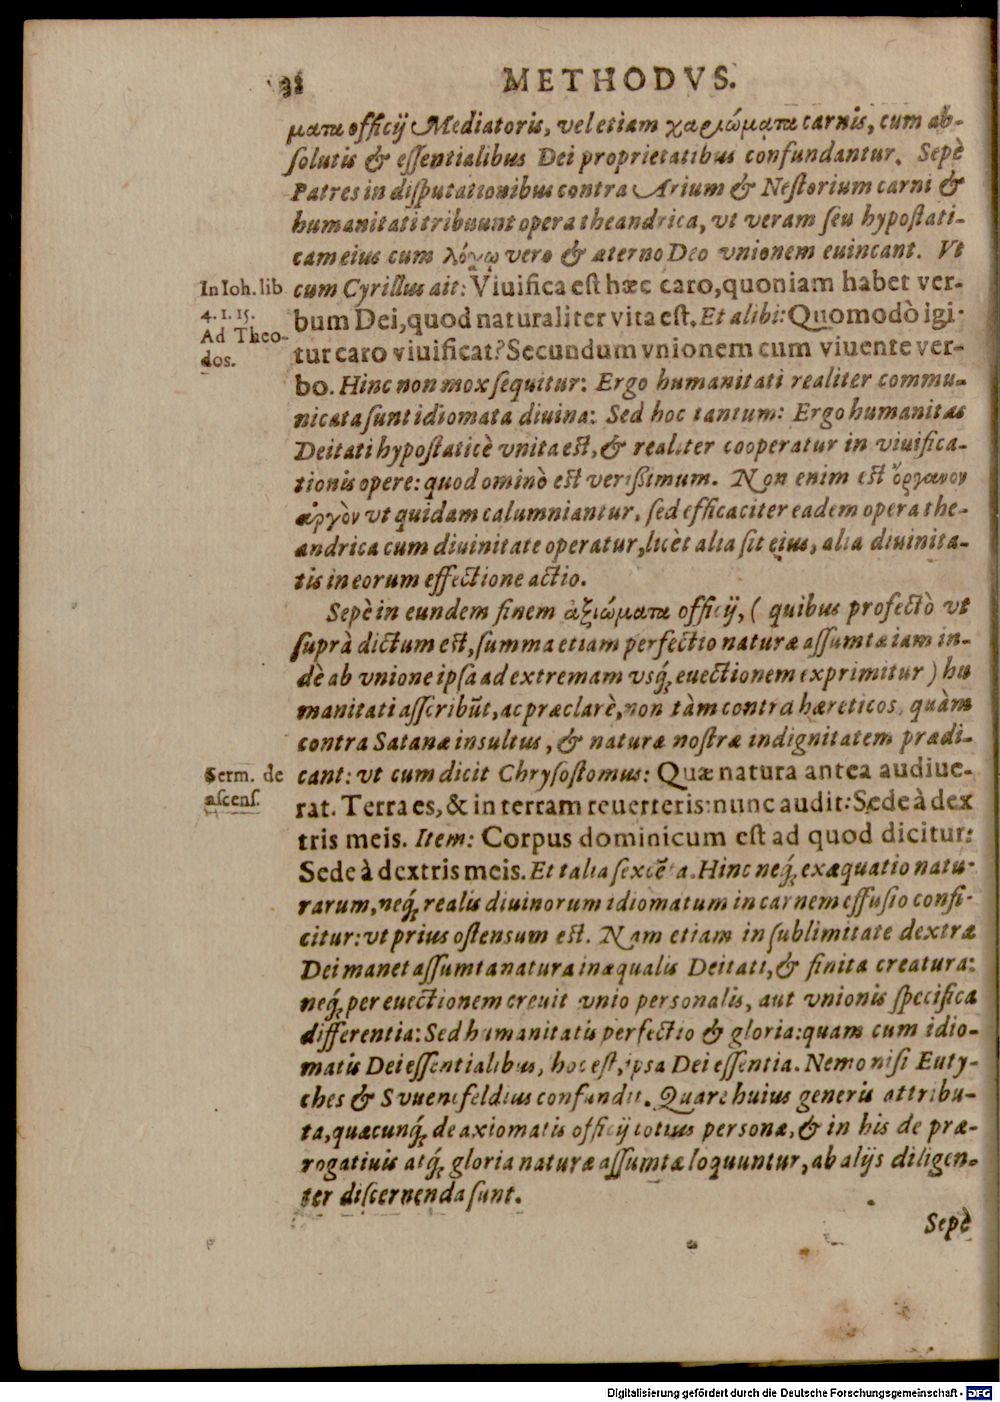 32 METHODVS.
ματα officij Mediatoris, vel etiam χαριώματα carnis, cum ab-
solutis & essentialibus Dei proprietatibus confundantur. Sepè
Patres in disputationibus contra Arium & Nestorium carni &
humanitati tribuunt opera theandrica, vt veram seu hypostati-
cam eius cum λόγῳ vero & æterno Deo vnionem euincant. Vt
In Ioh. lib. cum Cyrillus ait: Viuifica est hæc caro, quoniam habet ver-
4. 1. 15. bum Dei, quod naturaliter vita est. Et alibi: Quomodò igi-
Ad Theo-
dos. tur caro viuificat? Secundum vnionem cum viuente ver-
bo. Hinc non mox sequitur: Ergo humanitati realiter commu-
nicata sunt idiomata diuina: Sed hoc tantum: Ergo humanitas
Deitati hypostaticè vnita est, & realiter cooperatur in viuifica-
tionis opere: quod ominò est verißimum. Non enim est ὄργανον
αἰργὸν vt quidam calumniantur, sed efficaciter eadem opera the-
andrica cum diuinitate operatur, licèt alia sit eius, alia diuinita-
tis in eorum effectione actio.
Sepè in eundem finem ἀξιώματα officij, ( quibus profectò vt
suprà dictum est, summa etiam perfectio naturæ assumtæ iam in-
dè ab vnione ipsa ad extremam vsq́; euectionem exprimitur ) hu
manitati asscribūt, ac præclarè, non tàm contra hæreticos, quàm
contra Satanæ insultus, & naturæ nostræ indignitatem prædi-
Serm. de cant: vt cum dicit Chrysostomus: Quæ natura antea audiue-
ascens. rat. Terra es, & in terram reuerteris: nunc audit: Sede à dex
tris meis. Item: Corpus dominicum est ad quod dicitur:
Sede à dextris meis. Et talia sexcēta. Hinc neq́; exæquatio natu-
rarum, neq́; realis diuinorum idiomatum in carnem effusio confi-
citur: vt prius ostensum est. Nam etiam in sublimitate dextræ
Dei manet assumta natura inæqualis Deitati, & finita creatura:
neq́; per euectionem creuit vnio personalis, aut vnionis specifica
differentia: Sed humanitatis perfectio & gloria: quam cum idio-
matis Dei essentialibus, hoc est, ipsa Dei essentia. Nemo nisi Euty-
ches & Svuencfeldius confundit. Quare huius generis attribu-
ta, quæcunq́; de axiomatis officij totius personæ, & in his de præ-
rogatiuis atq́; gloria naturæ assumtæ loquuntur, ab alijs diligen-
ter discernenda sunt.
Sepè
Digitalisierung gefördert durch die Deutsche Forschungsgemeinschaft - DFG